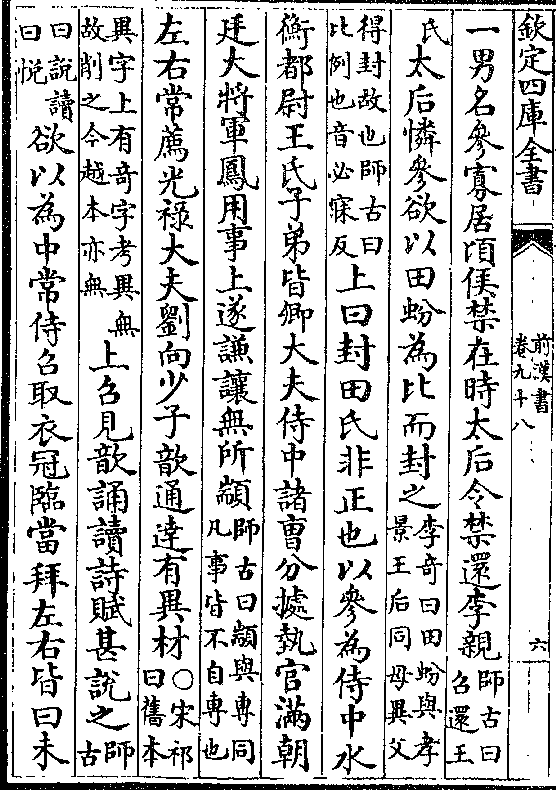 欽定四庫全書
前漢書
卷九十八
六
一男名參寡居頃侯禁在時太后令禁還李親師古曰召還王
氏太后憐參欲以田蚡為比而封之李奇曰田蚡與孝景王后同母異父
得封故也師古曰比例也音必寐反上曰封田氏非正也以參為侍中水
衡都尉王氏子弟皆卿大夫侍中諸曹分㨿執官滿朝
廷大將軍鳳用事上遂謙讓無所顓師古曰顓與專同凡事皆不自專也
左右常薦光祿大夫劉向少子歆通達有異材○宋祁曰舊本
異字上有奇字考異無故削之今越本亦無上召見歆誦讀詩賦甚說之師古
曰說讀曰悅欲以為中常侍召取衣冠臨當拜左右皆曰未